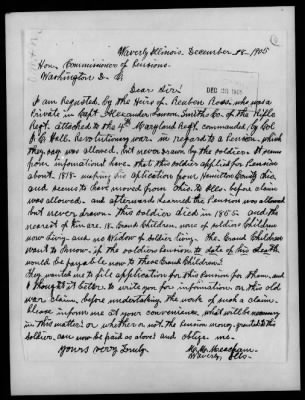 Waverly Illinois. December 18. 1905
Hon. Commissioner of Pensions.
Washington D. C.
Dear Sir:
DEC 20 1905
I am requested, by the Heirs of Reuben Ross, who was a
Private in Capt. Alexander Lawson Smiths Co. of the Rifle
Regt. attached to the 4th Maryland Regt. commanded, by Col
J. C. Hall. Revolutionary War; in regard to a Pension, which
they say was allowed, but never drawn by the soldier. It seems
from information I have, that this soldier applied for Pension
about 1818- making his aplication from Hamilton County Ohio
and seems to have moved from Ohio. to Ills. before claim
was allowed. and afterwards learned the Pension was allowed
but never drawn- This soldier died in 1865. and the
nearest of Kin are 18. Grand Children. none of soldiers Children
now living- and no Widow of soldier living. The Grand Children
want to Know, if the soldiers Pension, to date of his death
would be payable now to these Grand Children?
They wanted me to file application for this Pension for them, and
I thought it better. to write you for information. on this old
war. claim, before undertaking the work of such a claim.
Please inform me at your convenience, what will be necessary
in this matter: or whether or not, the Pension money, granted to this
soldier, can now be paid as above? and oblige me.
Yours very truly.
Waverly, Ills.